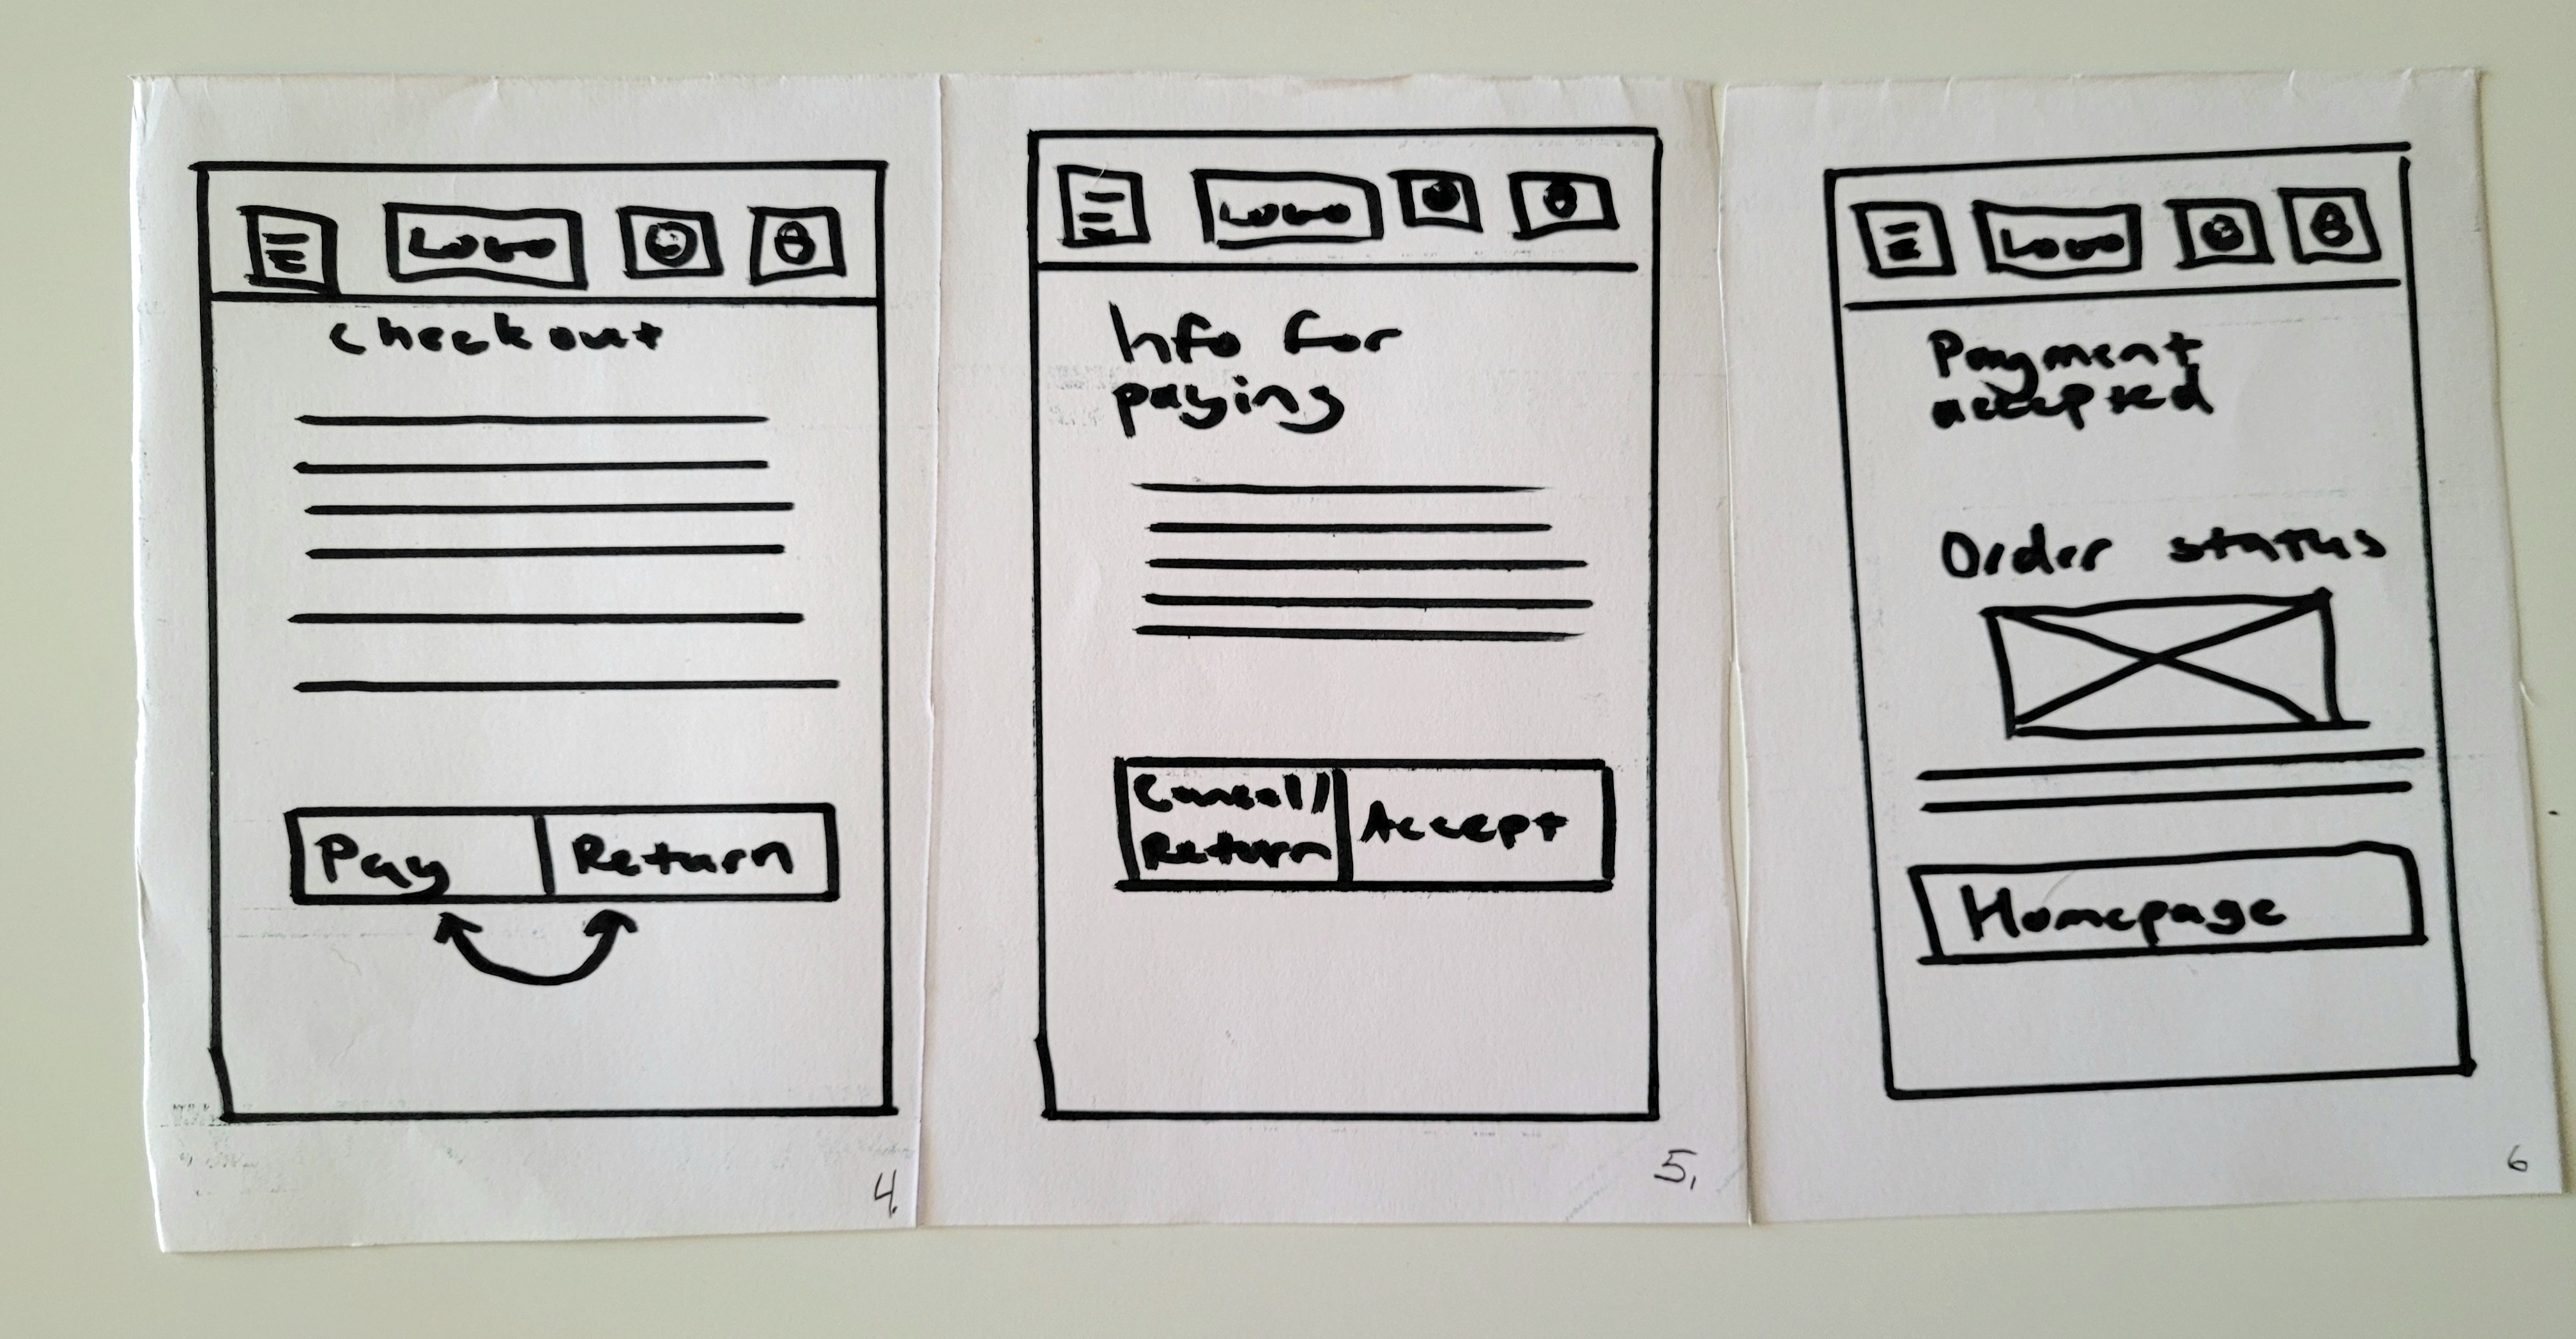 Logo
checkout
Pay
Return
4.
Logo
Info for
paying
Cancel/
Return
Accept
5.
Logo
Payment
accepted
Order status
Homepage
6